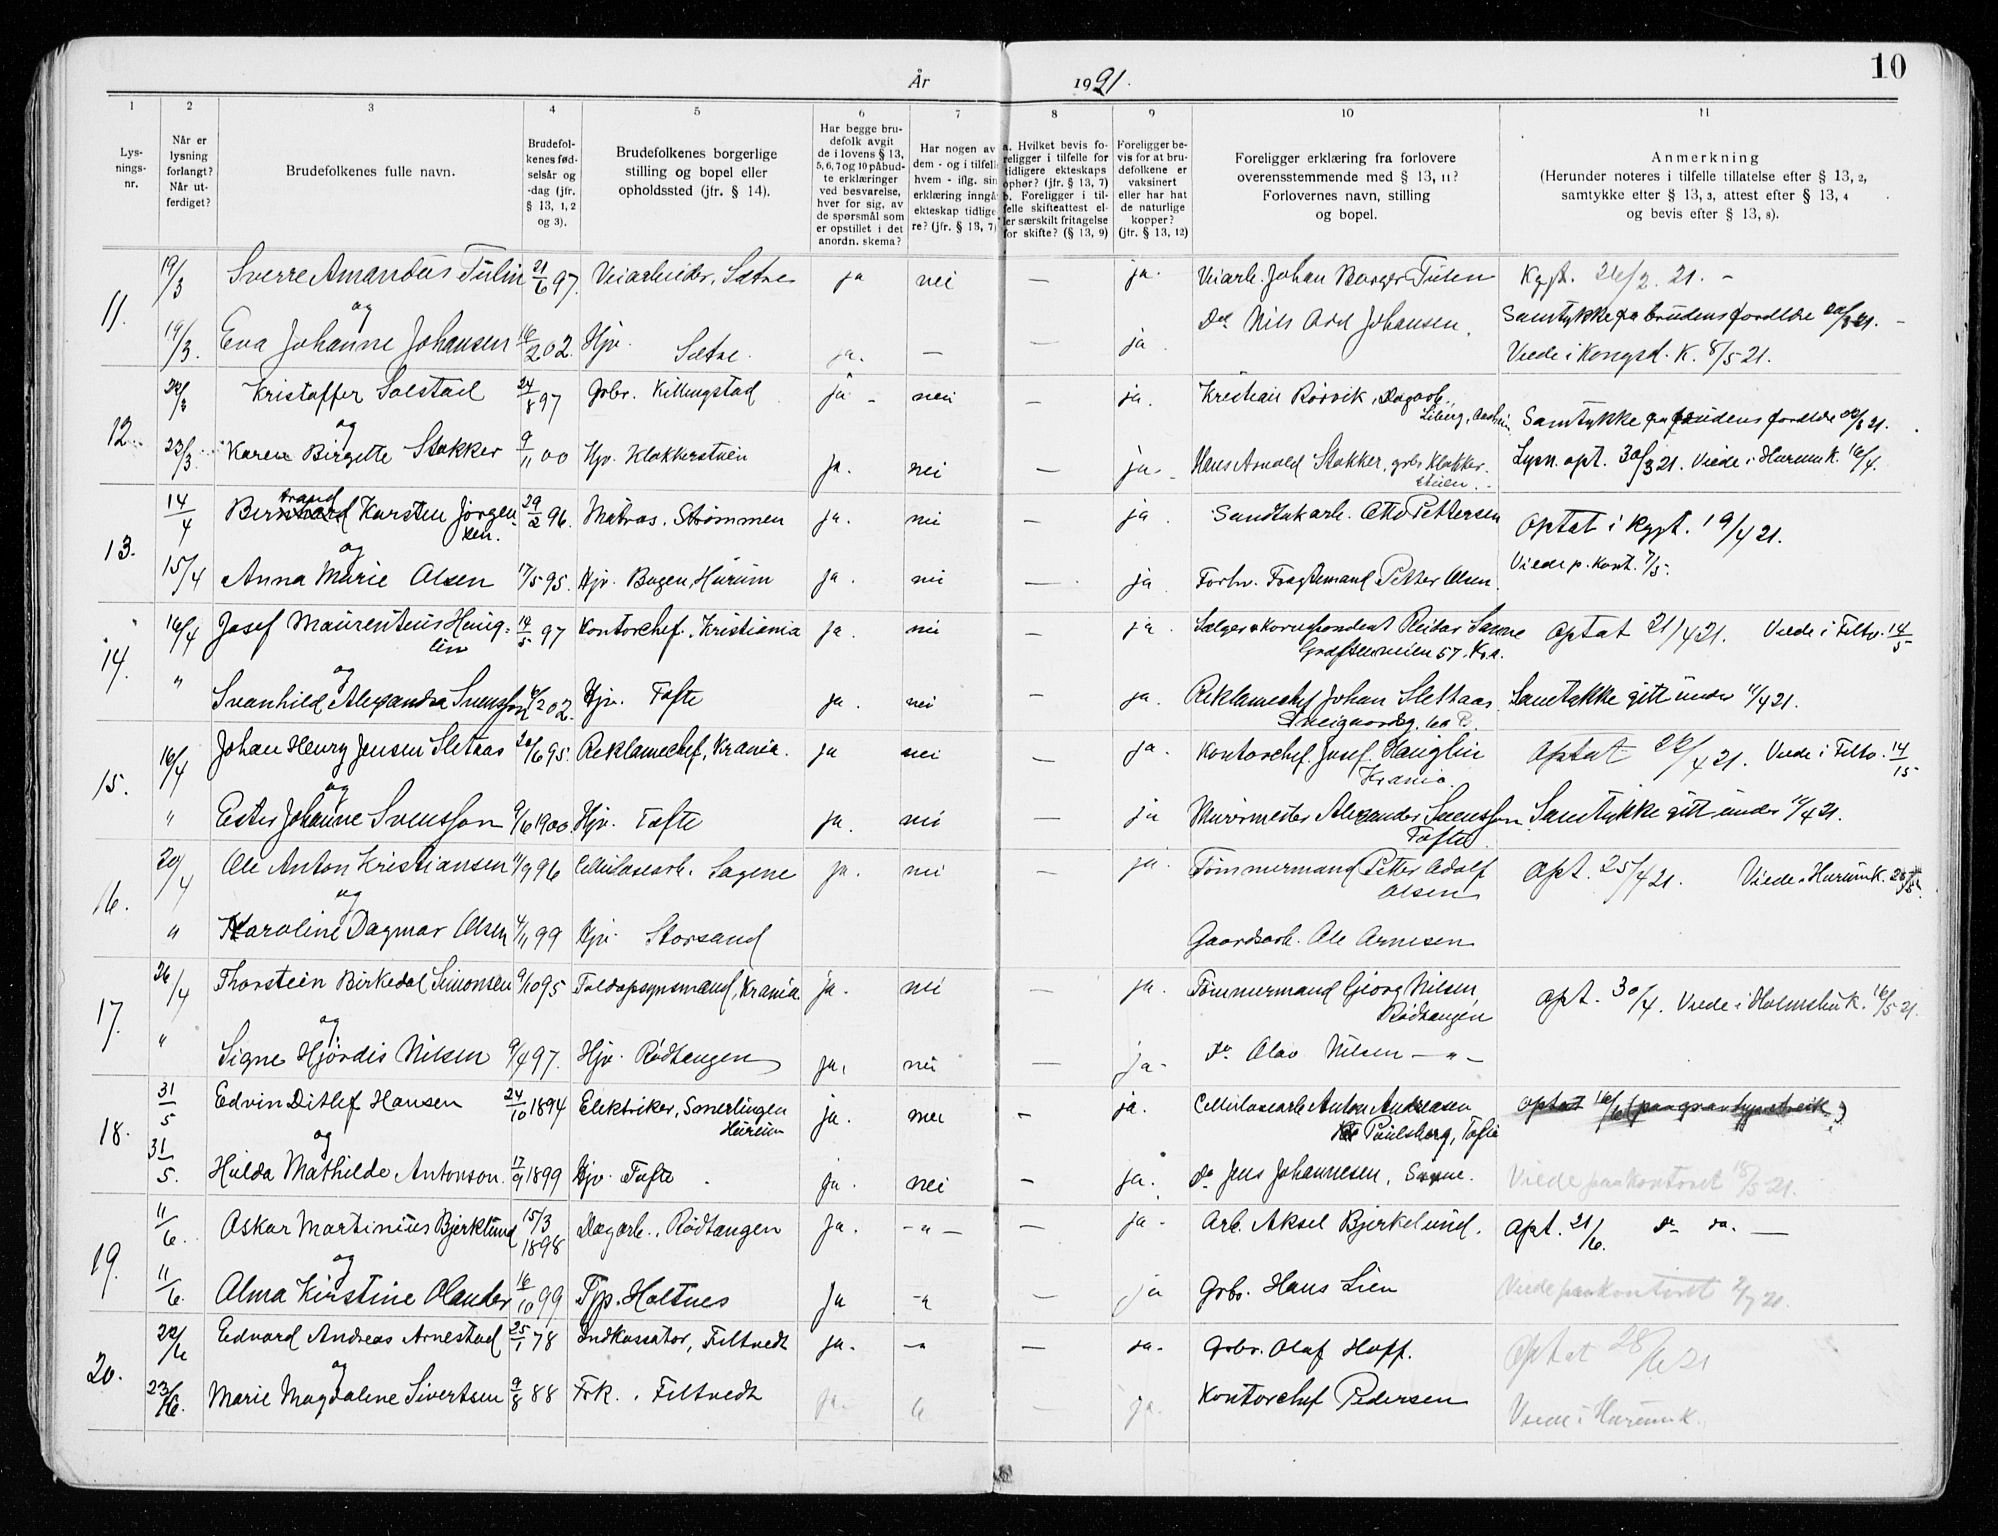 10
År 1921.
1 2 3 4 5 6 7 8 9 10 11
Lysningsnr.
Når er lysning forlangt? Når utferdiget?
Brudefolkenes fulle navn.
Brudefolkenes fødselsår og -dag (jfr. § 13, 1, 2 og 3).
Brudefolkenes borgerlige stilling og bopel eller opholdssted (jfr. § 14).
Har begge brudefolk avgit de i lovens § 13, 5, 6, 7 og 10 påbudte erklæringer ved besvarelse, hver for sig, av de spørsmål som er opstillet i det anordn. skema?
Har nogen av dem - og i tilfelle hvem - iflg. sin erklæring inngå ekteskap tidligere? (jfr. § 13, 7)
a. Hvilket bevis foreligger i tilfelle for tidligere ekteskaps ophør? (jfr. § 13, 7) b. Foreligger i tilfelle skifteattest eller særskilt fritagelse for skifte? (§ 13, 9)
Foreligger bevis for at brudefolkene er vaksinert eller har hat de naturlige kopper? (jfr. § 13, 12)
Foreligger erklæring fra forlovere overensstemmende med § 13, 11? Forlovernes navn, stilling og bopel.
Anmerkning (Herunder noteres i tilfelle tillatelse efter § 13, 2, samtykke efter § 13, 3, attest efter § 13, 4 og bevis efter § 13, 8).
11. 19/3 Sverre Amandus Tulin 21/6 97. Veiarbeider, Sætre ja nei — ja. Veiarb. Johan Tulen Kgpt. 26/3. 21. –
og
19/3. Eva Johanne Johansen 16/2 02. Hjv. Sætre. ja. — ja. Do Nils Johansen. Samtykke fra brudens foreldre 20/3 21. –
Viede i Kongsd. K. 8/5 21.
12. 22/3 Kristoffer Solstad 24/8 97 Grbr. Killingstad ja - nei ja. Kristian Rørvik, Dagarb., Liberg,
og
23/3. Karen Birgette Stokker 9/11 00 Hjv. Klokkerstuen ja. nei — ja- Hans Arnold Stokker, grbr. Klokkerstuen. Samtykke fra brudens foreldre 20/3 21.
Lysn. opt. 30/3 21. Viede i Hurum K. 16/4.
13. 14/4 Bernhard trand Karsten Jörgensen. 29/2 96. Matros. Strømmen ja. nei — ja. Sandtakarb. Otto Pettersen Optat i Kgpt. 19/4 21.
og
15/4 Anna Marie Olsen 17/5 95. Hjv. Bogen, Hurum ja. nei — ja Forhv. Fragtemand Petter Olsen. Viede p. kont. 7/5.
14. 16/4 Josef Maurentius Heiuglin 14/5 97 Kontorchef, Kristiania ja. nei — ja. Sælger & korrespondent Reidar Sanne Grefsenveien 57. Kra. Optat 21/4 21. Viede i Filtv. 14/5
og
" Svanhild Alexandra Svensson 02. Hjv. Tofte ja. nei — ja. Reklamechef Johan Slettaas Schweigaardsg. Samtykke gitt under 11/4 21.
15. 16/4 Johan Henry Jensen Sletaas 20/6 95. Reklamechef, Krania. ja nei — ja. Kontorchef. Josef Hauglin Krania. Optat 22/4 21. Viede i Filtv. 14/15
og
" Ester Johanne Svensson 9/6 1900. Hjv. Tofte ja. nei — ja Murermester Alexander Svensson Tofte. Samtykke gitt under 11/4 21.
16. 20/4 Ole Anton Kristiansen 11/9 96 Cellulosearb. Sagene ja. nei — ja. Tømmermand Petter Adolf Olsen Opt. 25/4 21. Viede i Hurum K.
og
" Karoline Dagmar Olsen 4/11 99 Hjv. Storsand Gaardsarb. Ole Arnesen
17. 26/4 Thorstein Birkedal Simonsen 9/10 95 Toldopsynsmand, Krania ja. nei — ja. Tømmermand Georg Nilsen, Rødtangen Opt. 30/4. Viede i Holmsbu K. 16/5 21.
og
" Signe Hjördis Nilsen 9/4 97. Hjv. Rødtangen ja, nei — ja- Do Olav Nilsen — " —
18. 31/5 Edvin Ditlef Hansen 24/10 1894 Elektriker, Smerlingen Hurum ja. nei — ja. Cellulosearb Anton Andreasen Poulsberg, Tofte Optat 16/6 (
og
31/5. Hulda Mathilde Antonson. 17/9 1899 Hjv. Tofte ja. nei — ja. Do Jens Johannesen, Viede paa kontoret 18/5 21.
19. 11/6. Oskar Martinius Bjerklund 15/3 1898 Dagarb., Rødtangen ja. - " — ja- Arb. Aksel Bjerkelund. Opt. 21/6. Do Do. —
og
11/6. Alma Kirstine Olander 16/10 99 Tjp. Holtnes ja -" — ja Grbr. Hans Lien Viede paa kontoret 2/7 21.
20. 22/6 Edvard Andreas Arnestad 25/1 78 Indkassator, Filtvedt ja. -" — ja. Grbr. Olaf Hoff. Optat 28/6 21
og
23/6. Marie Magdalene Sivertsen 9/8 88 Frk. Filtvedt ja. — ja. Kontorchef Pedersen Viede i Hurum K.